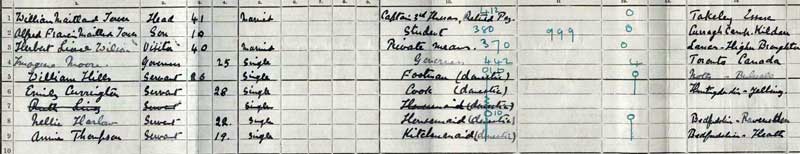 1 William Maitland Tower Head 41 Married Captain 3rd Hussars, Retired Pay. 413 0 Takeley Essex
2 Alfred Francis Maitland Tower Son 10 Student 380 999 0 Curragh Camp. Kildare
3 Herbert William Visitor 40 Married Private means. 370 0
4 Imogene Moore Governess 25 Single Governess 442 4 Toronto Canada
5 William Hills Servant 26 Single Footman (domestic) 0 Notts -
6 Emily Currington Servant 28 Single Cook (domestic) Huntingdon - Yelling
7 Ruth King Servant Single Housemaid (domestic)
8 Nellie Harlow Servant 22. Single Housemaid (domestic) 010 0 Bedfordshire -
9 Annie Thompson Servant 19. Single Kitchenmaid (domestic) Bedfordshire - Heath
10